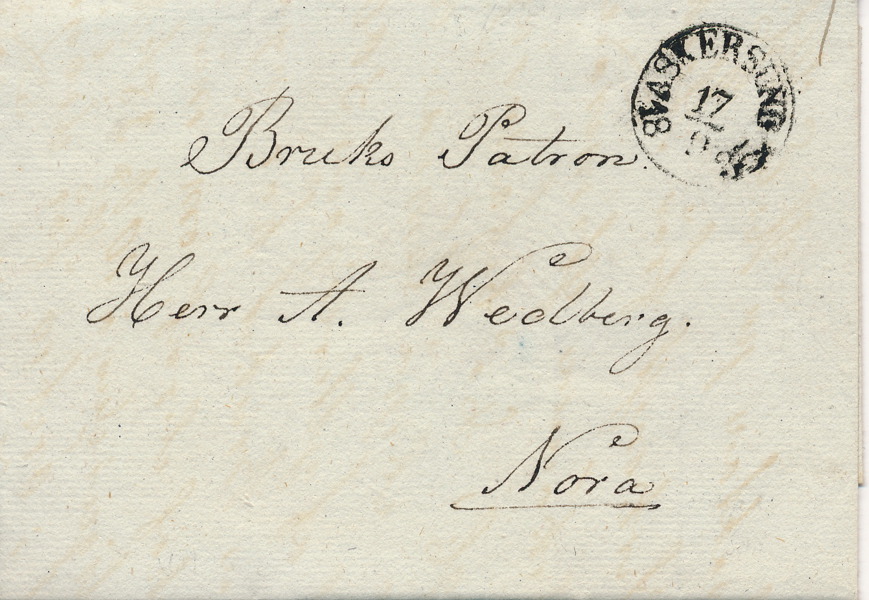 ASKERSUND
17
9
Bruks Patron
Herr A. Wedberg.
Nora